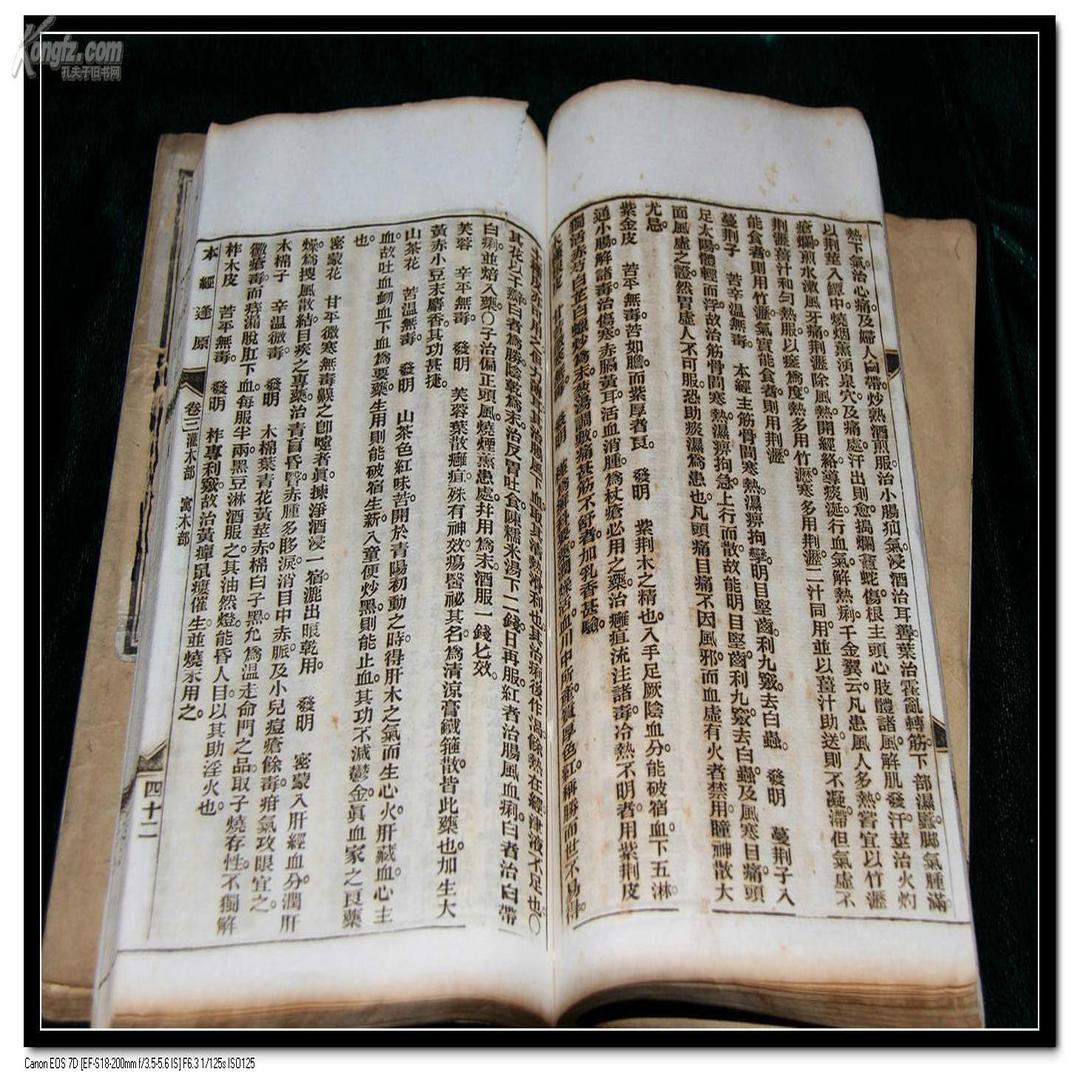 Kongfz.com
孔夫子旧书网
熱下氣治心痛及婦人白帶炒熟酒煎服治小腸疝氣浸酒治耳聾葉治霍亂轉筋下部濕䘌腳氣腫滿
以荆莖入罈中燒烟熏湧泉穴及痛處汗出則愈搗爛蓋蛇傷根主頭心肢體諸風解肌發汗莖治火灼
瘡爛煎水漱風牙痛荆瀝除風熱開經絡導痰涎行血氣解熱痢千金翼云凡患風人多熱嘗宜以竹瀝
荆瀝薑汁和勻熱服以瘥為度熱多用竹瀝寒多用荆瀝二汁同用並以薑汁助送則不凝滯但氣虛不
能食者則用竹瀝氣實能食者則用荆瀝
蔓荆子　苦辛溫無毒　本經主筋骨間寒熱濕痹拘攣明目堅齒利九竅去白蟲　發明　蔓荆子入
足太陽體輕而浮故治筋骨間寒熱濕痹拘急上行而散故能明目堅齒利九竅去白蟲及風寒目痛頭
面風虛之證然胃虛人不可服恐助痰濕為患也凡頭痛目痛不因風邪而血虛有火者禁用瞳神散大
尤忌
紫金皮　苦平無毒苦如膽而紫厚者良　發明　紫荆木之精也入手足厥陰血分能破宿血下五淋
通小腸解諸毒治傷寒赤膈黃耳活血消腫為杖瘡必用之藥治癰疽流注諸毒冷熱不明者用紫荆皮
獨活赤芍白芷白蠟炒為末葱湯調敷痛甚筋不舒者加乳香甚驗
其花以千瓣白者為勝陰乾為末治反胃吐食陳糯米湯下二錢日再服紅者治腸風血痢白者治白帶
白痢並焙入藥○子治偏正頭風燒煙熏患處幷用為末酒服一錢匕效
芙蓉　辛平無毒　發明　芙蓉葉散癰疽殊有神效瘍醫祕其名為清涼膏鐵箍散皆此藥也加生大
黃赤小豆末麝香其功甚捷
山茶花　苦溫無毒　發明　山茶色紅味苦開於青陽初動之時得肝木之氣而生心火肝藏血心主
血故吐血衂血下血為要藥生用則能破宿生新入童便炒黑則能止血其功不減鬱金眞血家之良藥
也
密蒙花　甘平微寒無毒齅之卽嚏者眞揀淨酒浸一宿漉出晾乾用　發明　密蒙入肝經血分潤肝
燥為搜風散結目疾之專藥治青盲昏瞖赤腫多眵淚消目中赤脈及小兒痘瘡餘毒疳氣攻眼宜之
木棉子　辛溫微毒　發明　木棉葉青花黃莖赤棉白子黑允為溫走命門之品取子燒存性不獨解
黴瘡毒而痔漏脫肛下血每服半兩黑豆淋酒服之其油然燈能昏人目以其助淫火也
柞木皮　苦平無毒　發明　柞專利竅故治黃癉鼠瘻催生並燒末用之
本經逢原　卷三灌木部　寓木部　四十二
Canon EOS 7D [EF-S18-200mm f/3.5-5.6 IS] F6.3 1/125s ISO125